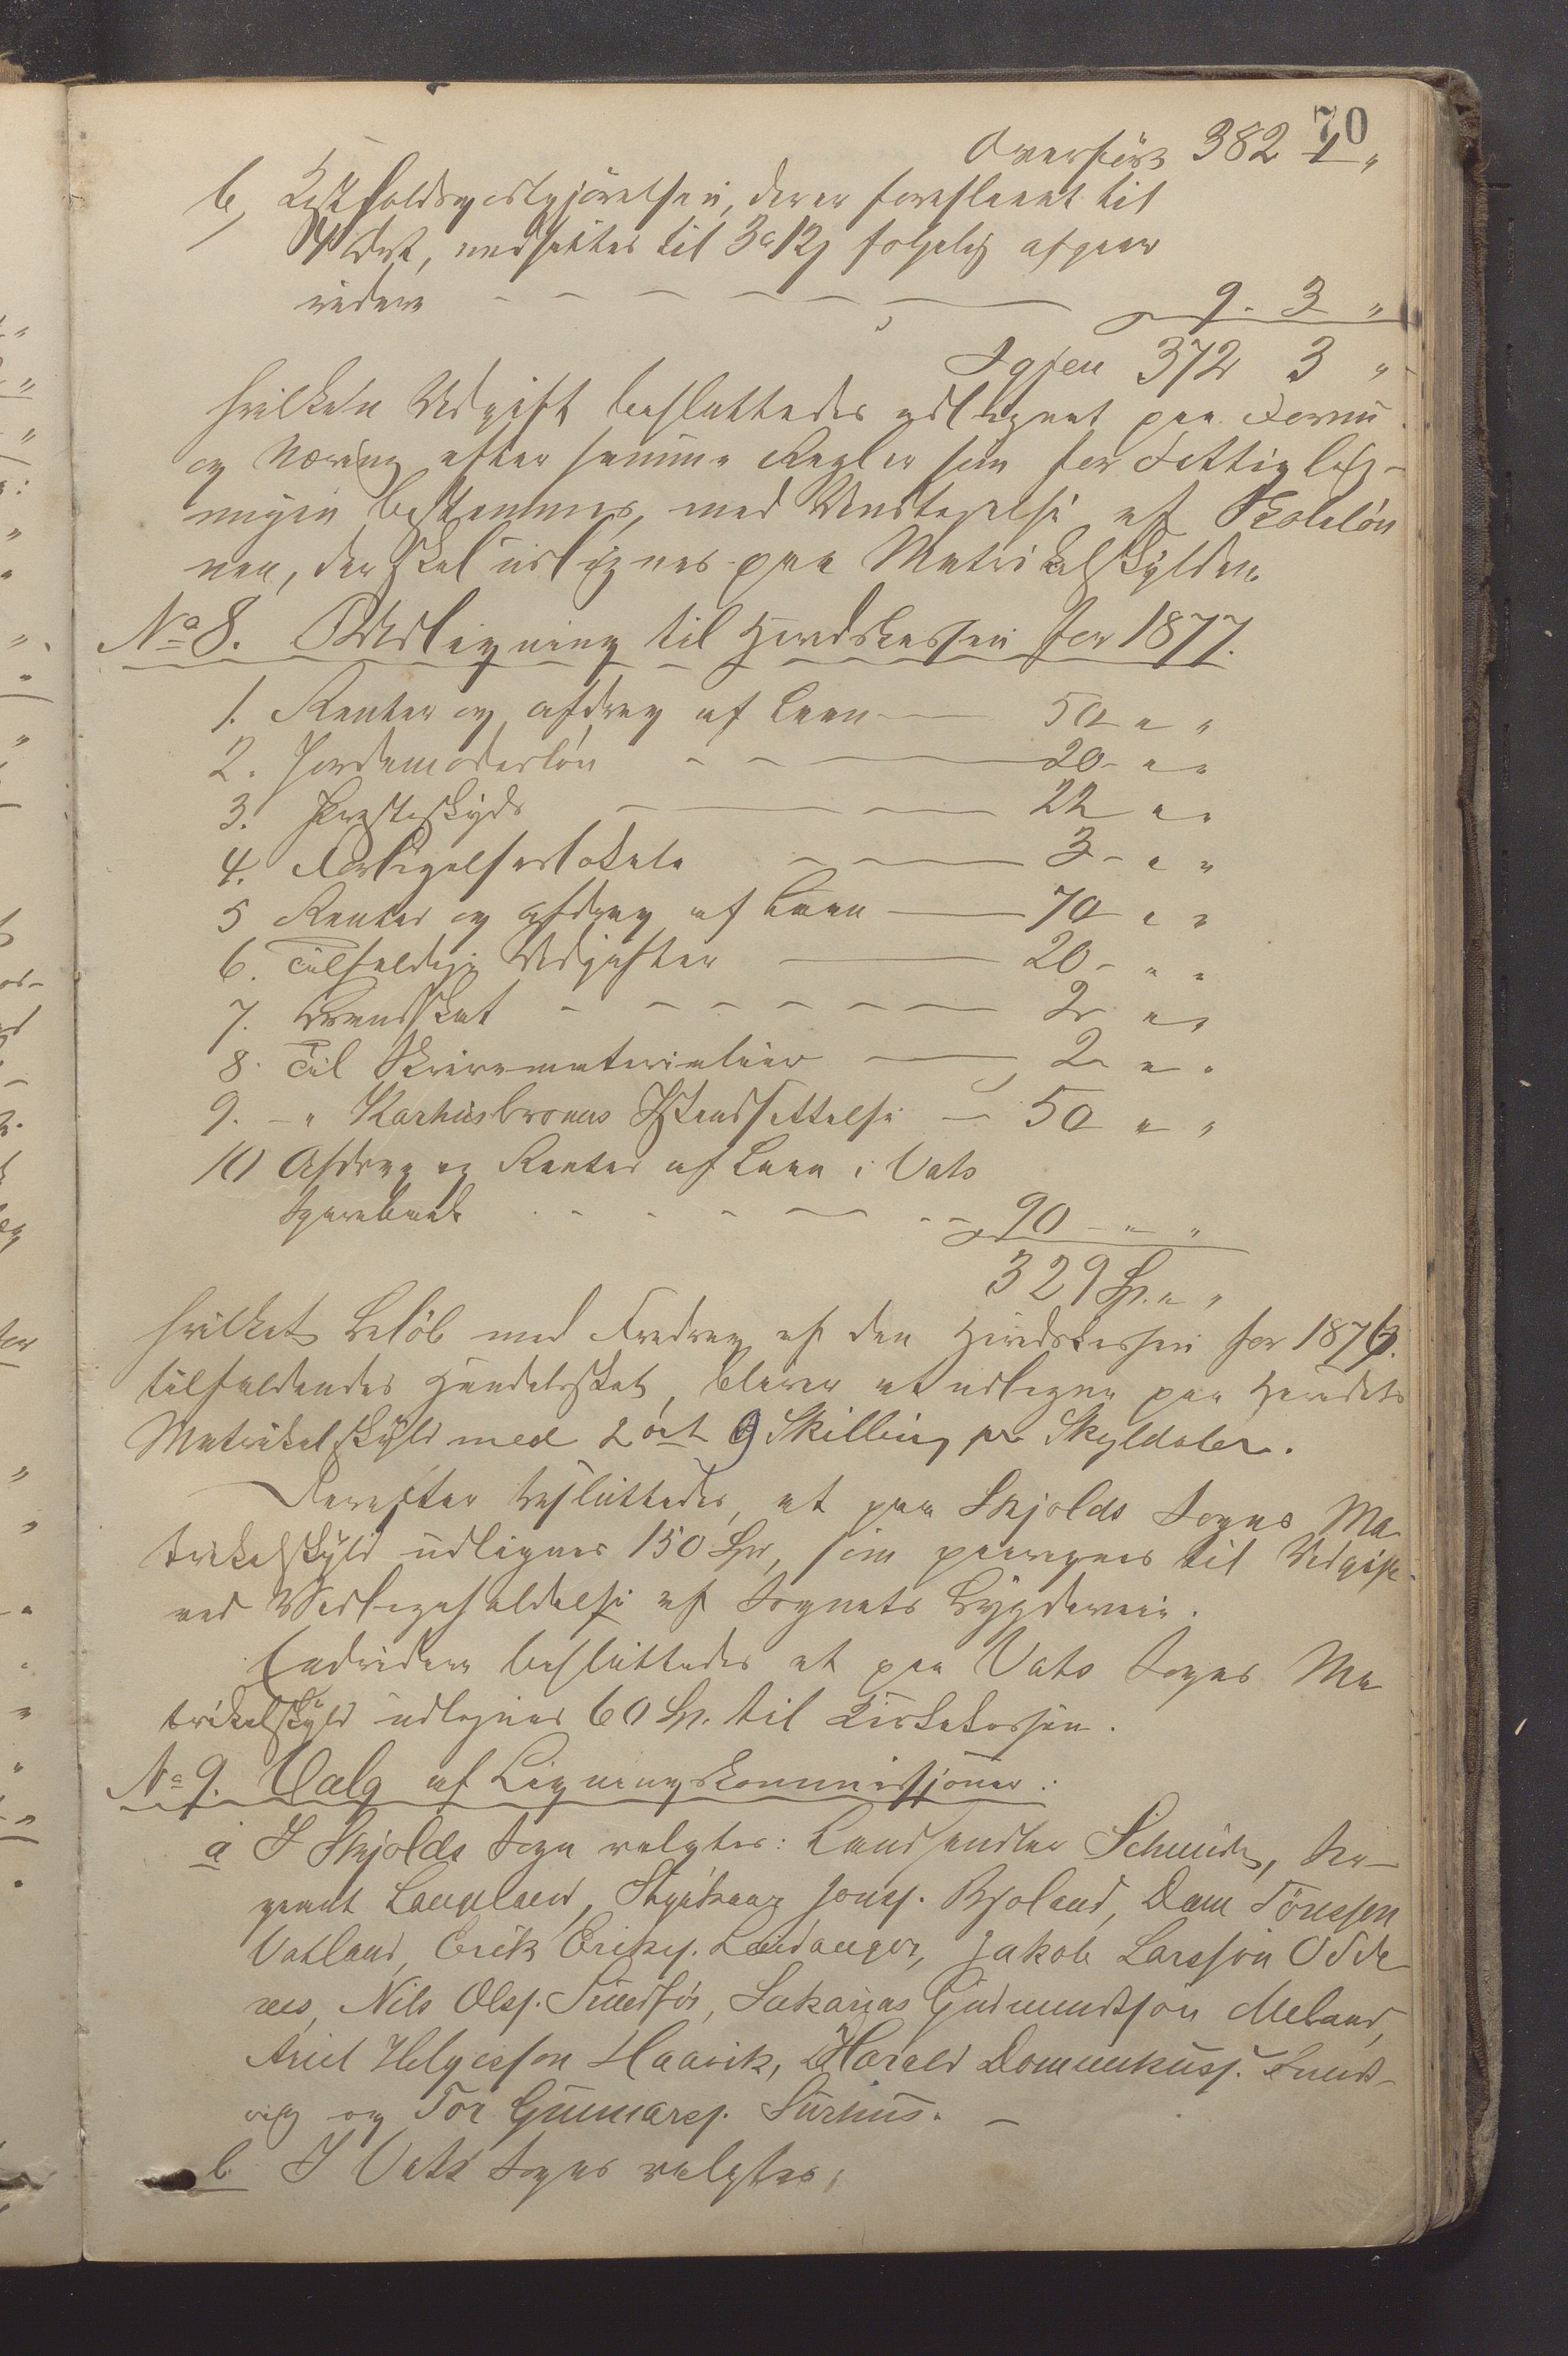 70
Overført 382 1 "
b, Kostholdsgodtgjørelsen, der er foreslaaet til
4 Ort, nedsættes til 3 a 12 ſ følgelig afgaar
videre - - - - - 9. 3 "
Igjen 372 3 "
hvilken Udgift besluttedes udlignet paa Formue
og Næring efter samme Regler som for Fattiglig-
ningen bestemmes, med Undtagelse af Skoleløn
nen, der skal udlignes paa Matrikelskylden.
No 8. Udligning til Herredskassen for 1877.
1. Renter og afdrag af Laan — 50 " "
2. Jordemoderløn - - — 20 - " "
3. Presteskyds — — 22 " "
4. Forligelseslokale - - — 3 - " "
5 Renter og afdrag af Laan — 70 " "
6. Tilfeldige Udgifter — 20 - " "
7. Brandskat - - - - - - 2 " "
8. Til Skrivematerialier — 2 " "
9. - " Karhusbroens Istandsettelse — 50 " "
10 Afdrag og Renter af Laan i Vats
Sparebank - - - - - - 90 - " "
329 Sp. " "
hvilket Beløb med Fradrag af den Herredskassen for 1876
tilfaldendes Handelsskat, bliver at udligne paa Herredets
Matrikelskyld med 2 ort 9 Skilling pr Skyldaler.
Derefter besluttedes, at paa Skjolds Sogns Ma-
trikelskyld udlignes 150 Spd, som paaregnes til Udgift
ved Vedligeholdelse af Sognets Bygdeveie.
Endvidere besluttedes at paa Vats Sogns Ma
trikelskyld udlignes 60 Sp. til Kirkekassen.
No 9. Valg af Ligningskommissjoner:
a I Skjolds Sogn valgtes: Landhandler Schmidt, Ser-
geant Langeland, Styrkaar Jonss. Bjoland, Dam Tønessen
Vatland, Erik Eriks. Leidanger, Jakob Larsson Odde
nes, Nils Ols. Sundfør, Sakarias Gudmundsson Meland,
Ariel Helgesson Haavik, Harald Dommikuss. Sund-
vig og Tor Gunnars. Surhus. -
b. I Vats Sogns valgtes;